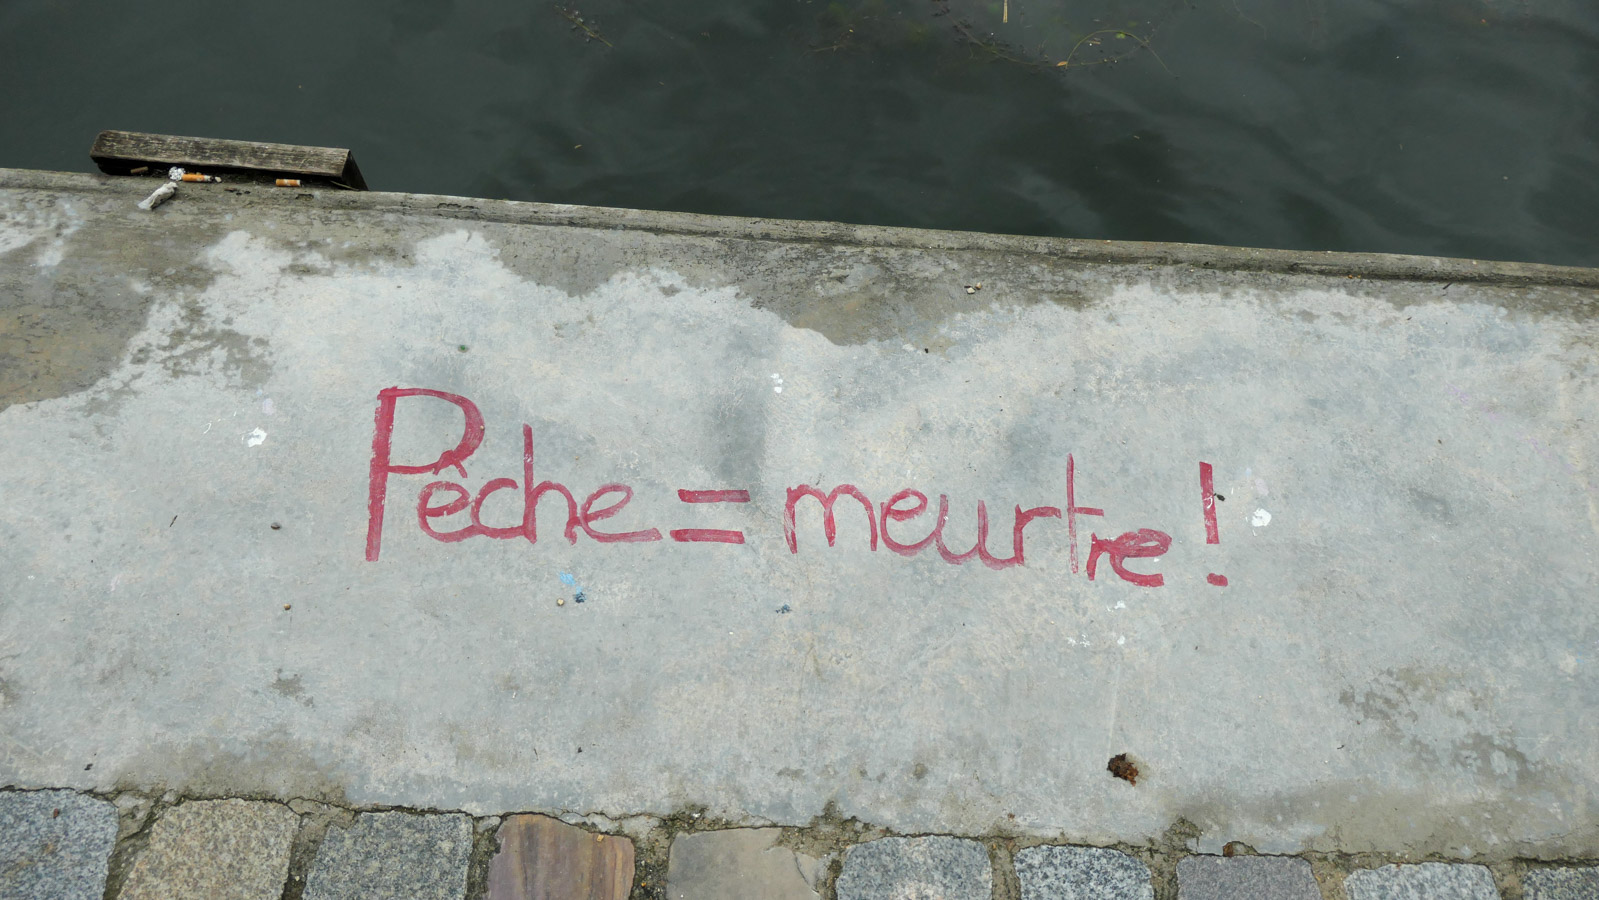 Pêche = meurtre !